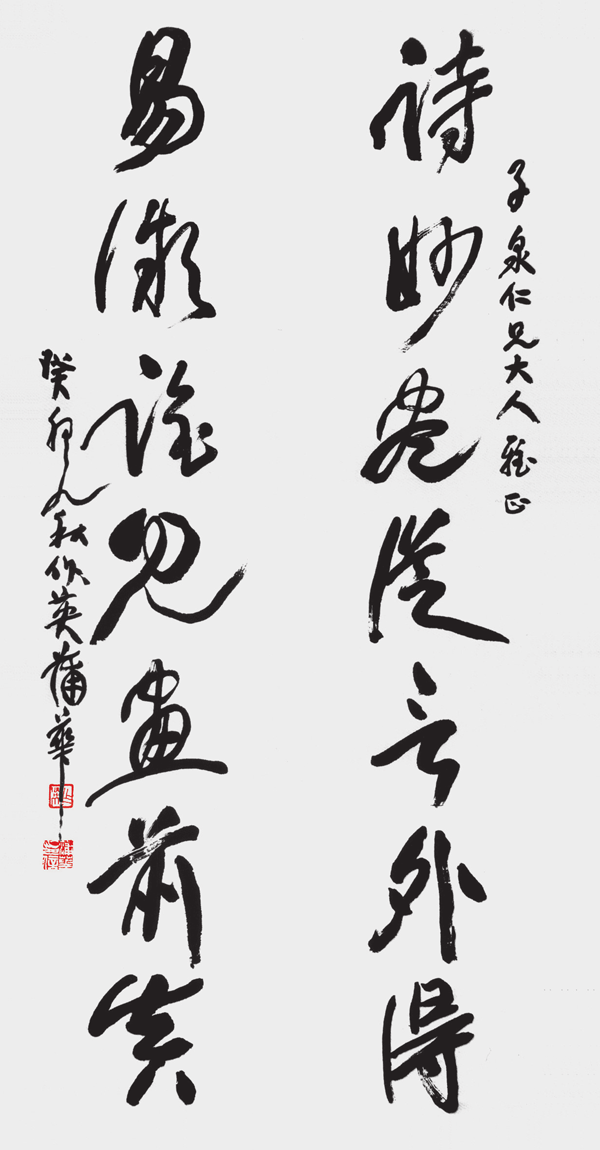 子泉仁兄大人雅正
詩妙盡從言外得
易微誰見畫前真
癸卯九秋作英蒲華